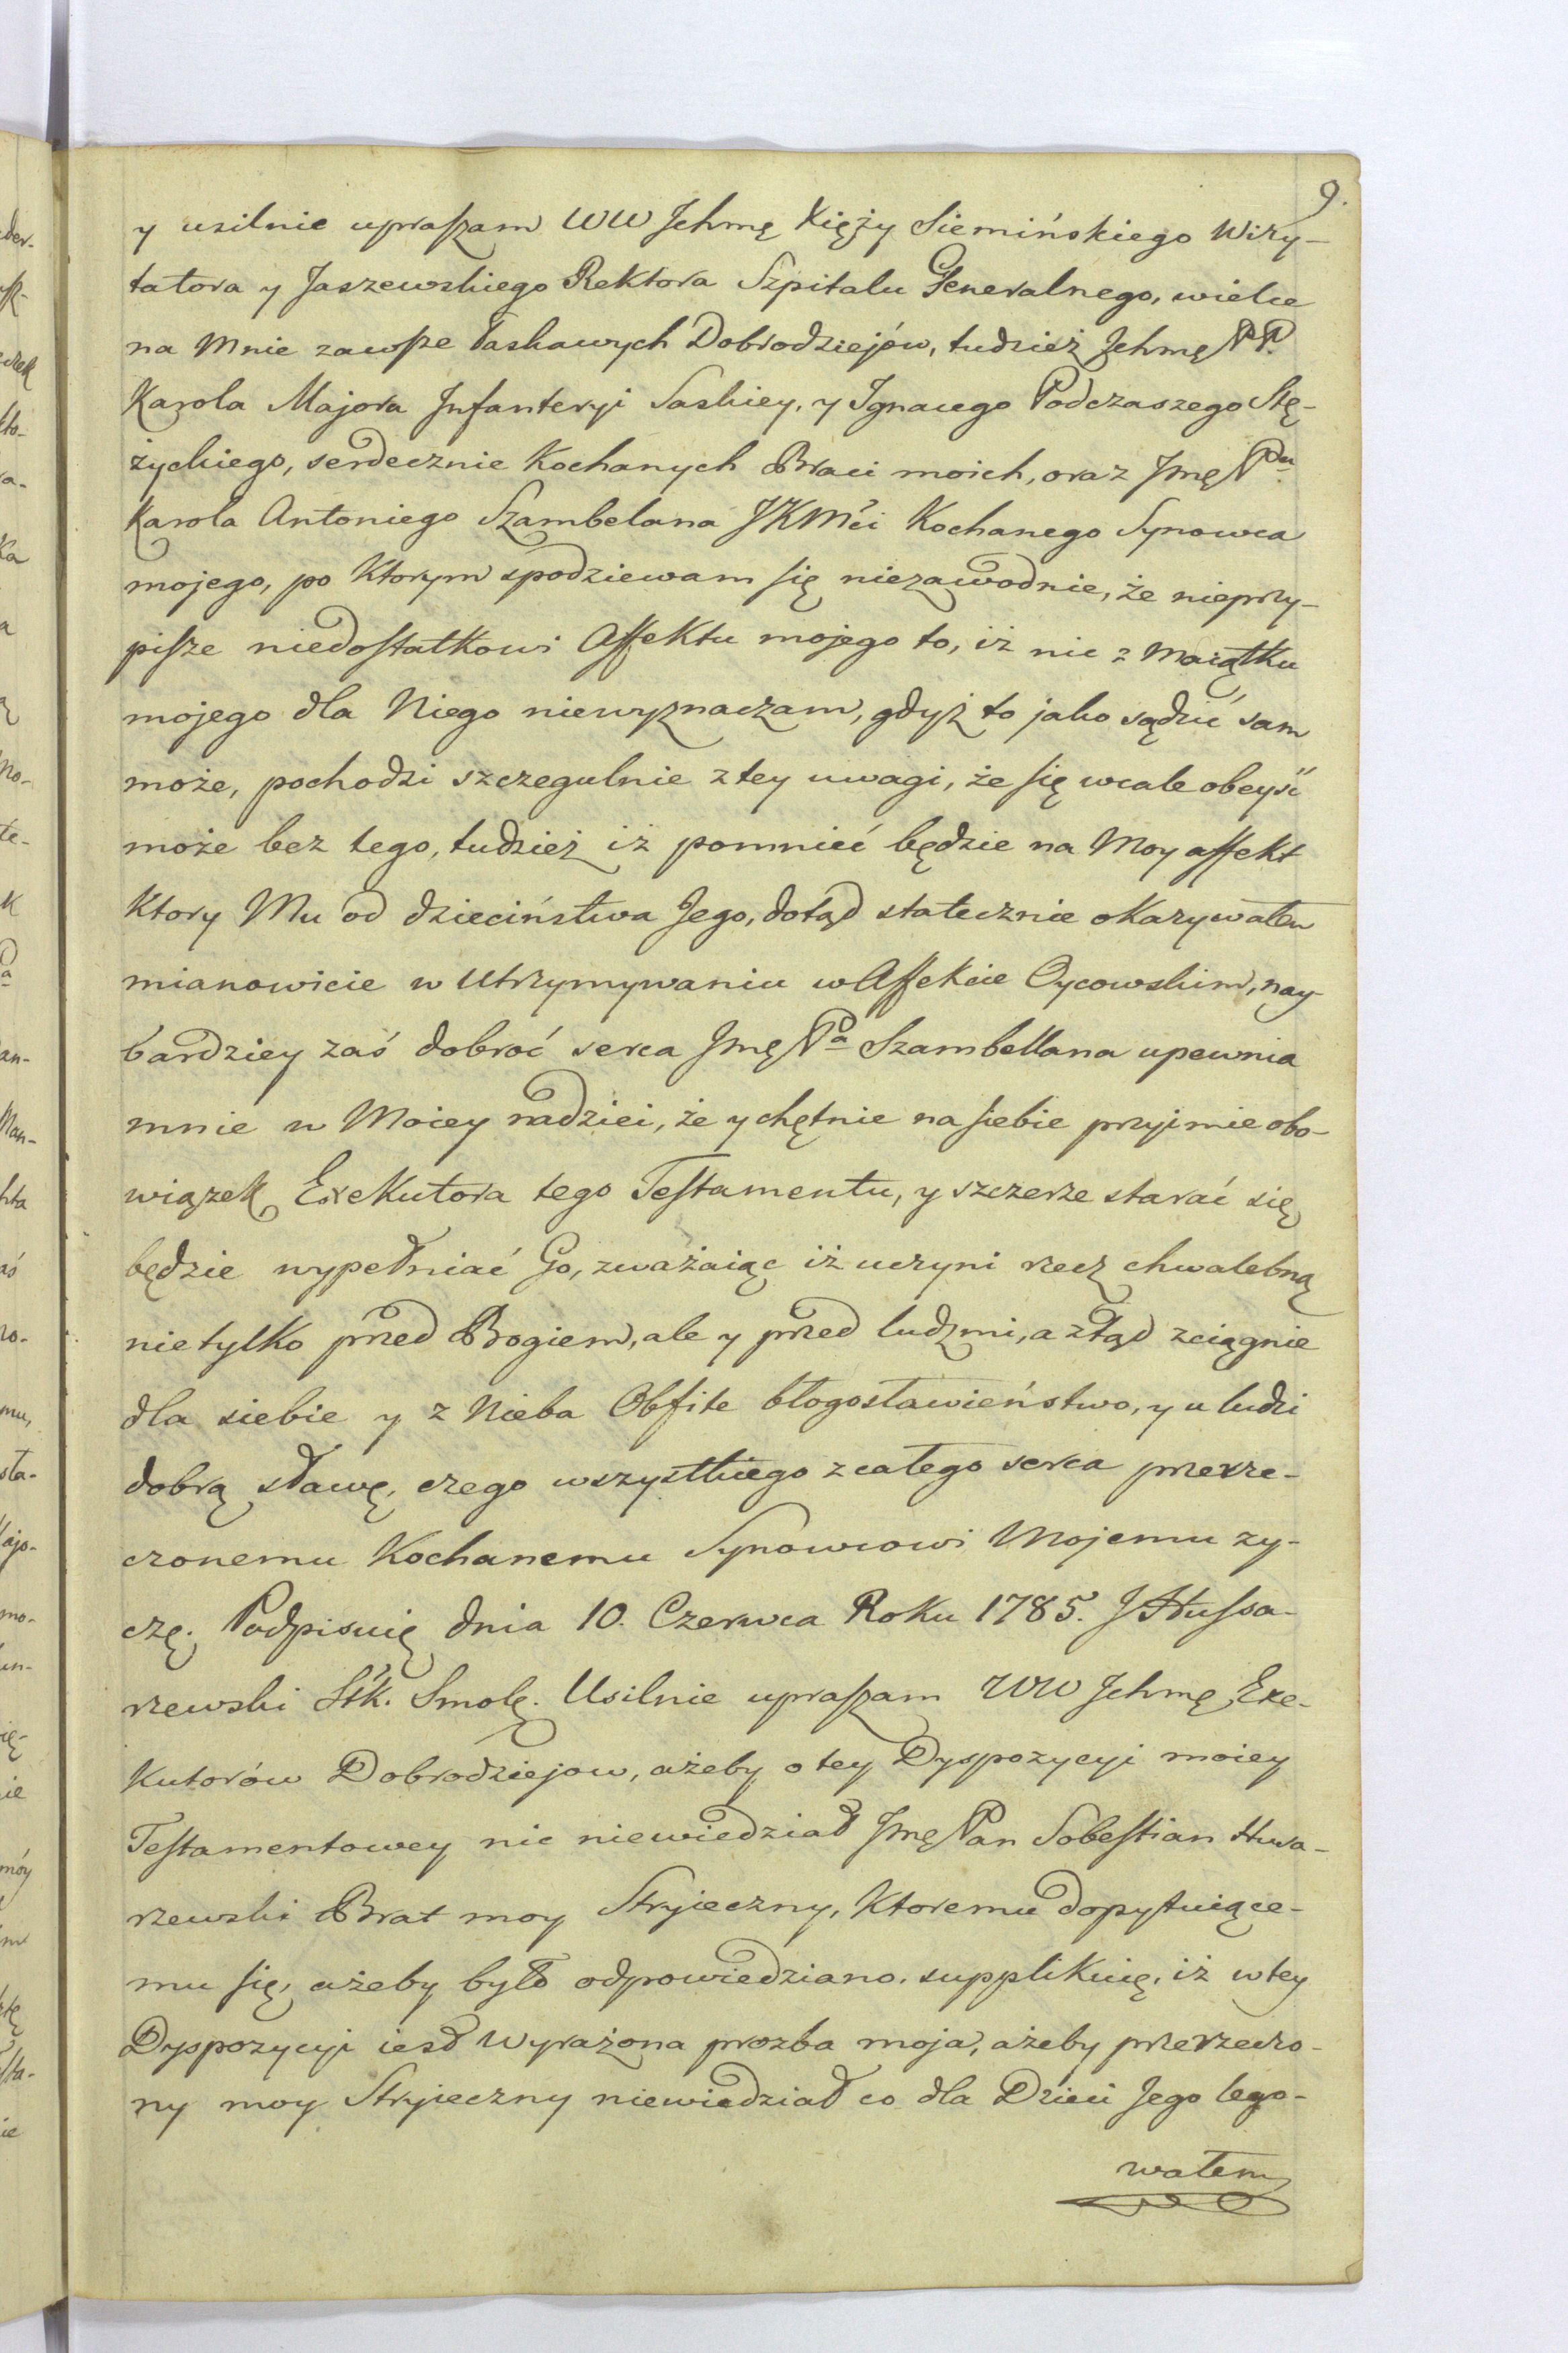 9.
y usilnie upraszam WW Jchmę Xięży Siemińskiego Wizy-
tatora y Jaszewskiego Rektora Szpitalu Generalnego, wielce
na Mnie zawsze łaskawych Dobrodziejów, tudzież Jchmę PP.
Karola Majora Infanteryi Saskiey, y Ignacego Podczaszego Stę-
życkiego, serdecznie Kochanych Braci moich, oraz Jmę Pa
Karola Antoniego Szambelana JKMći Kochanego Synowca
mojego, po Ktorym spodziewam się niezawodnie, że nieprzy-
pisze niedostatkowi Affektu mojego to, iż nic z Maiątku
mojego dla Niego niewyznaczam, gdyż to jako sądzić sam
może, pochodzi szczegulnie z tey uwagi, że się wcale obeyść
może bez tego, tudzież iż pomnieć będzie na Moy affekt
Ktory Mu od dzieciństwa Jego, dotąd statecznie okazywałem
mianowicie w Utrzymywaniu w Affekcie Oycowskim, nay-
bardziey zaś dobroć serca Jmę Pa Szambellana upewnia
mnie w Moiey nadziei, że y chętnie na siebie przyimie obo-
wiązek Exekutora tego Testamentu, y szczerze starać się
będzie wypełniać Go, zważaiąc iż uczyni rzecz chwalebną
nie tylko przed Bogiem, ale y przed ludzmi, a ztąd zciągnie
dla siebie y z Nieba Obfite błogosławieństwo, y u ludzi
dobrą sławę, czego wszystkiego z całego serca przerze-
czonemu Kochanemu Synowcowi Mojemu zy-
czę. Podpisuię dnia 10. Czerwca Roku 1785. J Hussa-
rzewski Stk. Smolę. Usilnie upraszam WW Jchmę Exe-
Kutorów Dobrodziejow, ażeby o tey Dyspozycyi moiey
Testamentowey nic niewiedział Jmę Pan Sobestian Husa-
rzewski Brat moy Stryieczny, Ktoremu dopytuiące-
mu się, ażeby było odpowiedziano, supplikuię, iż w tey
Dyspozycyi iest Wyrażona prozba moja, ażeby przerzeczo-
ny moy Stryieczny niewiedział co dla Dzieci Jego lego-
wałem